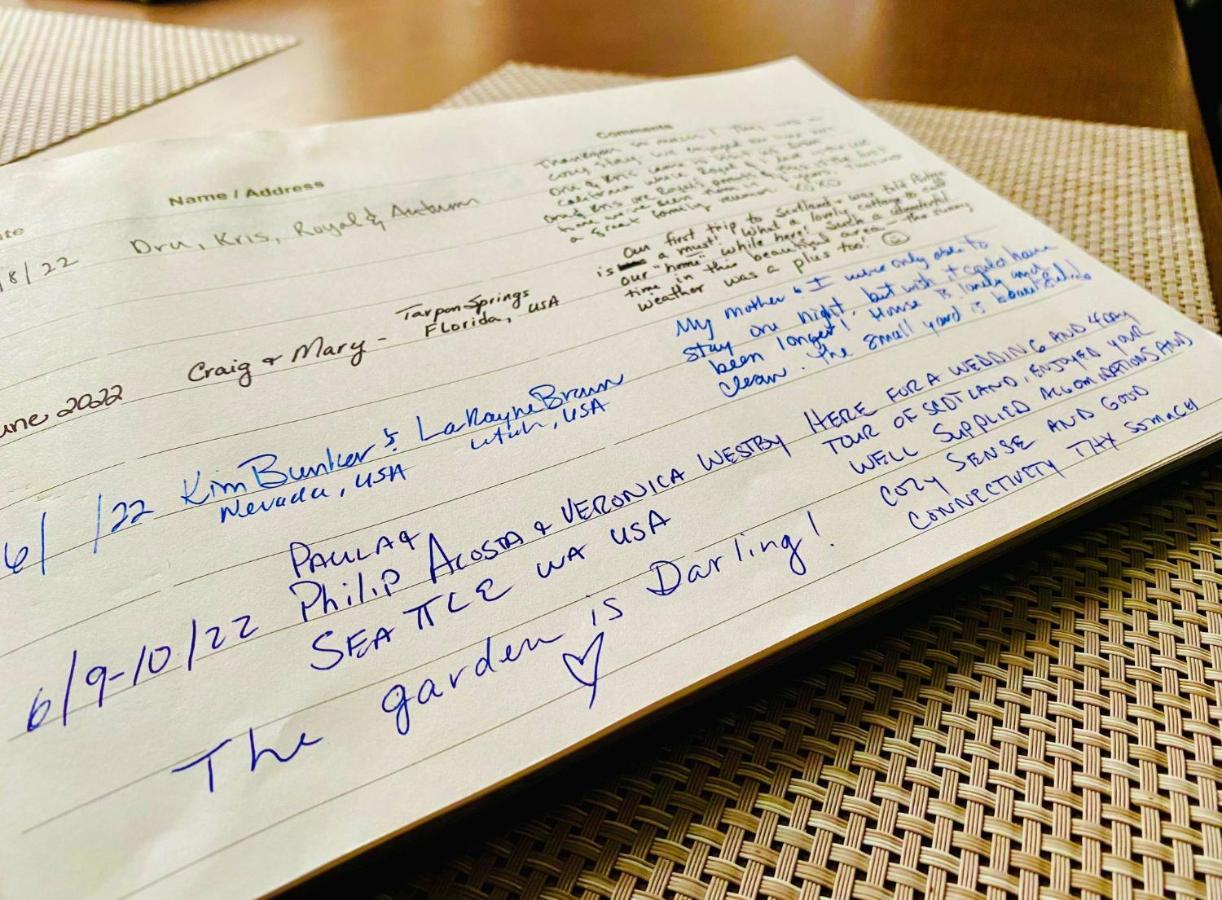 Name / Address
Comments
/8/22
Dru, Kris, Royal & Autum
Thankyou so much! This was a
cozy stay. We enjoyed
California
a great family reunion XOXO
une 2022
Craig & Mary -
Tarpon Springs
Florida, USA
Our first trip to Scotland & was told
is a must! What a lovely cottage to call
our "home" while here! Such a wonderful
time in this beautiful area - the sunny
weather was a plus too! ☺
6/ /22
Kim Bunker & LaRayne Braun
Nevada, USA
Utah, USA
My mother & I were only able to
stay one night, but wish I could have
been longer! House is lovely and
clean. The small yard is beautiful.
6/9-10/22
PAULA &
Philip ACOSTA & VERONICA WESTBY
SEATTLE WA USA
HERE FOR A WEDDING AND
TOUR OF SCOTLAND, ENJOYED YOUR
WELL SUPPLIED ACCOMINATIONS AND
COZY SENSE AND GOOD
CONNECTIVITY THX SOMACH
The garden is Darling!
♡